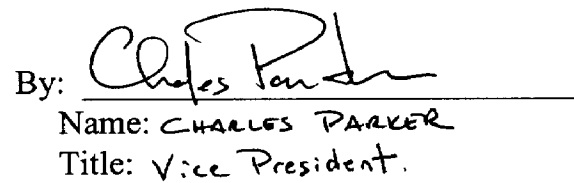 By: Charles Parker
Name: CHARLES PARKER
Title: Vice President.